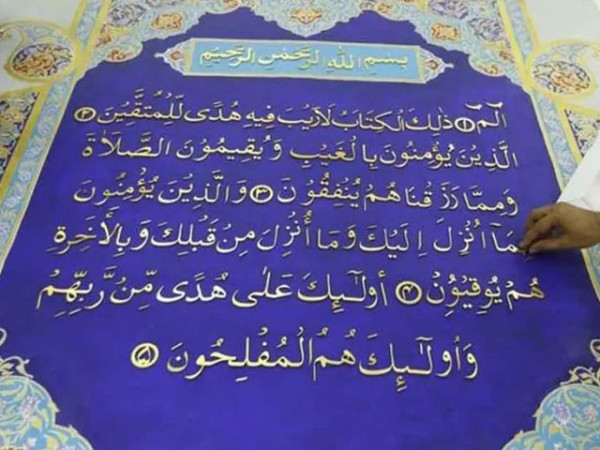 بِسْمِ اللهِ الرَّحْمٰنِ الرَّحِيْمِ
الٓمٓ ۝١ ذٰلِكَ الْكِتَابُ لَارَيْبَ فِيهِ هُدًى لِّلْمُتَّقِيْنَ ۝٢
الَّذِيْنَ يُؤْمِنُونَ بِالْغَيْبِ وَيُقِيمُونَ الصَّلَاةَ
وَمِمَّا رَزَقْنَاهُمْ يُنْفِقُوْنَ ۝٣ وَالَّذِيْنَ يُؤْمِنُونَ
مَآ اُنْزِلَ اِلَيْكَ وَمَا أُنْزِلَ مِنْ قَبْلِكَ وَبِالْاٰخِرَةِ
هُمْ يُوقِنُوْنَ ۝٤ أُولٰٓئِكَ عَلٰى هُدًى مِّنْ رَّبِّهِمْ
وَاُولٰٓئِكَ هُمُ الْمُفْلِحُونَ ۝٥